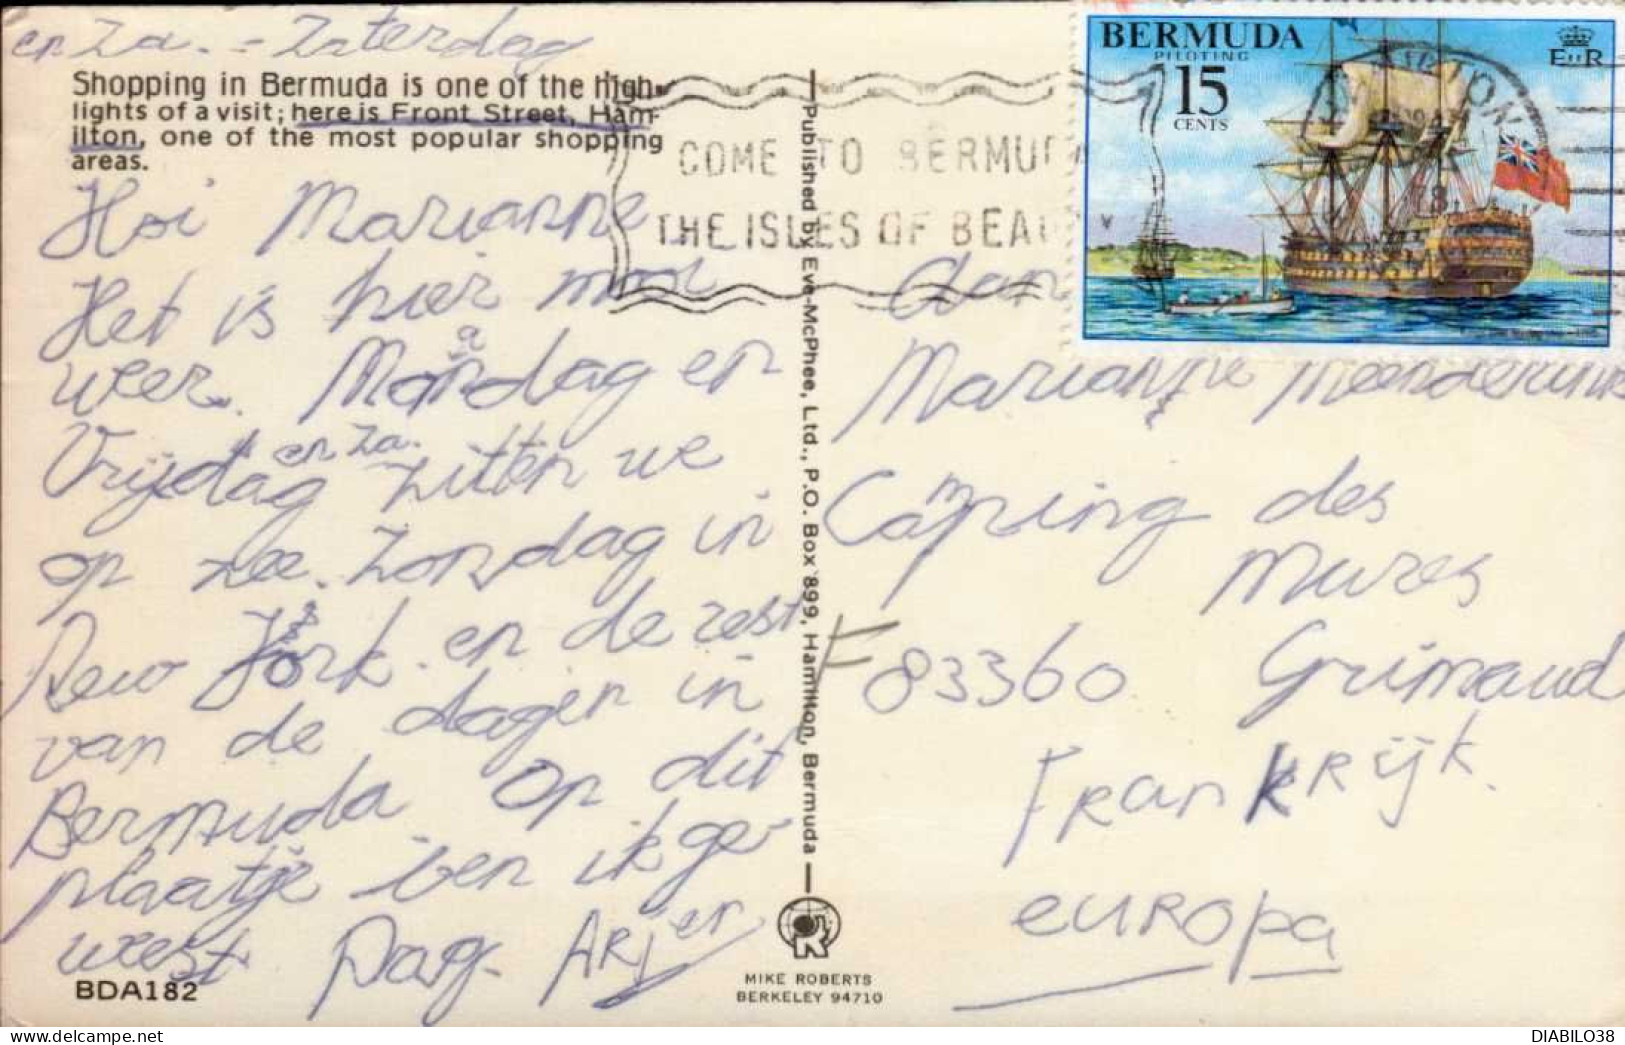 en Za. = Zaterdag
Shopping in Bermuda is one of the high-
lights of a visit; here is Front Street, Ham-
ilton, one of the most popular shopping
areas.
Hoi Marianne
Het is hier mooi
weer. Maandag en
Vrijdag en za. zitten we
op zee. Zondag in
New York en de rest
van de dagen in
Bermuda Op dit
plaatje ben ik ge-
weest Dag. Arjen
BDA182
Published by Eve-McPhee, Ltd., P.O. Box 899, Hamilton, Bermuda
MIKE ROBERTS
BERKELEY 94710
COME TO BERMUDA
THE ISLES OF BEAUTY
BERMUDA
PILOTING
15
CENTS
EIIR
HAMILTON
78
Aan
Marianne
Camping des
Mures
F 83360 Grimaud
Frankrijk.
europa
DIABILO38